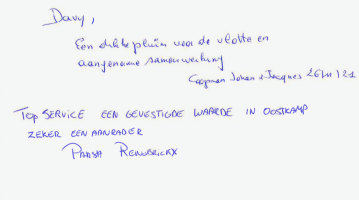 Davy,
Een dikke pluim voor de vlotte en
aangename samenwerking
Coopman Johan & Jacques 26/11/21
Top SERVICE EEN GEVESTIGDE WAARDE IN OOSTKAMP
ZEKER EEN AANRADER